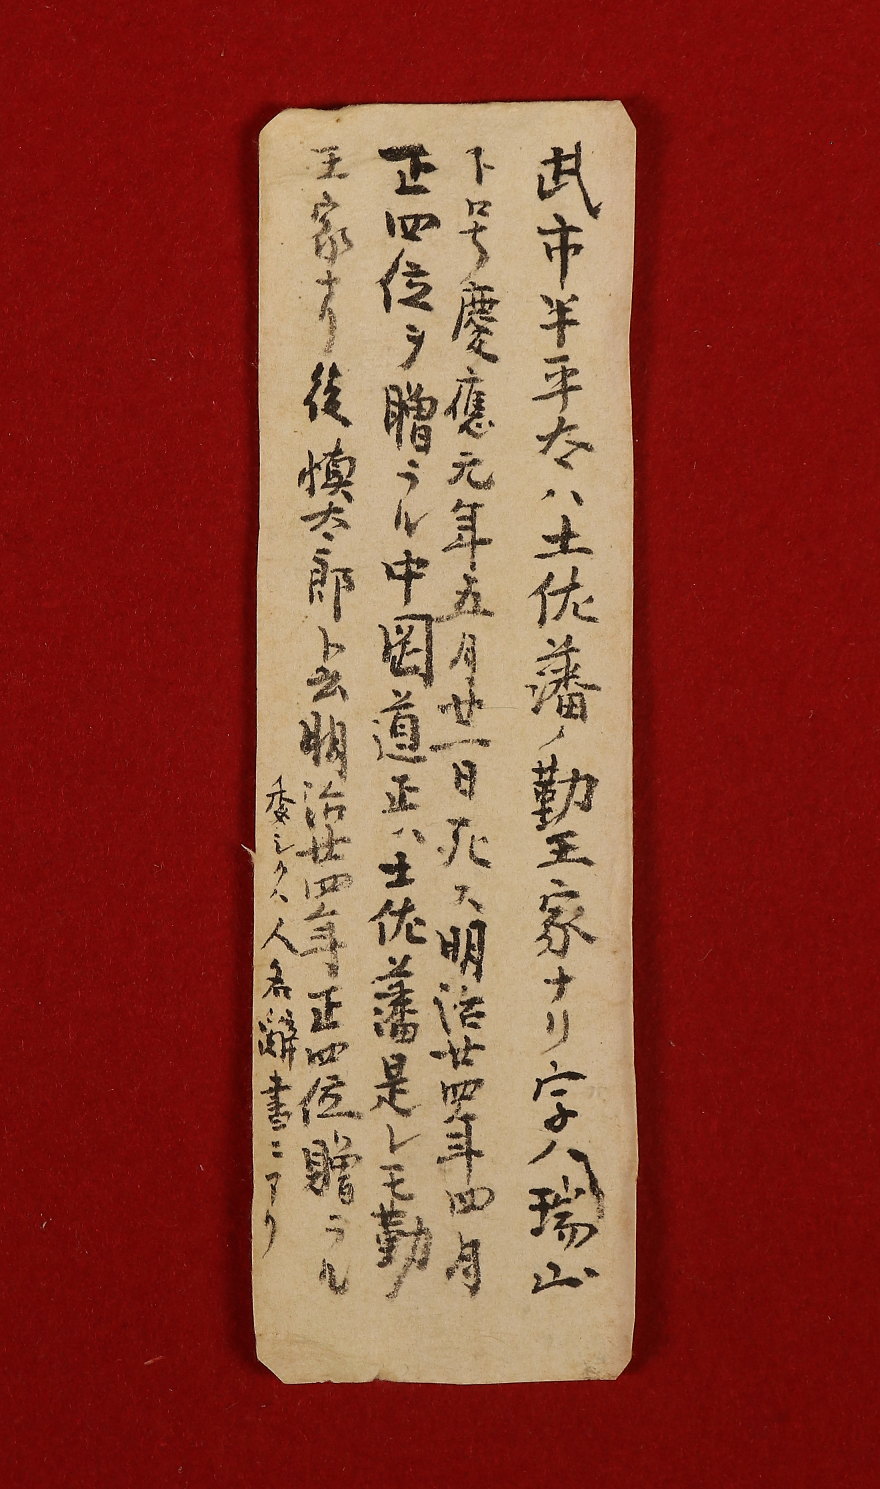 武市半平太ハ土佐藩ノ勤王家ナリ字ハ瑞山
ト号慶應元年五月廿一日死ス明治廿四年四月
正四位ヲ贈ラル中岡道正ハ土佐藩是レモ勤
王家ナリ後慎太郎ト云明治廿四年正四位贈ラル
委シクハ人名辭書ニアリ